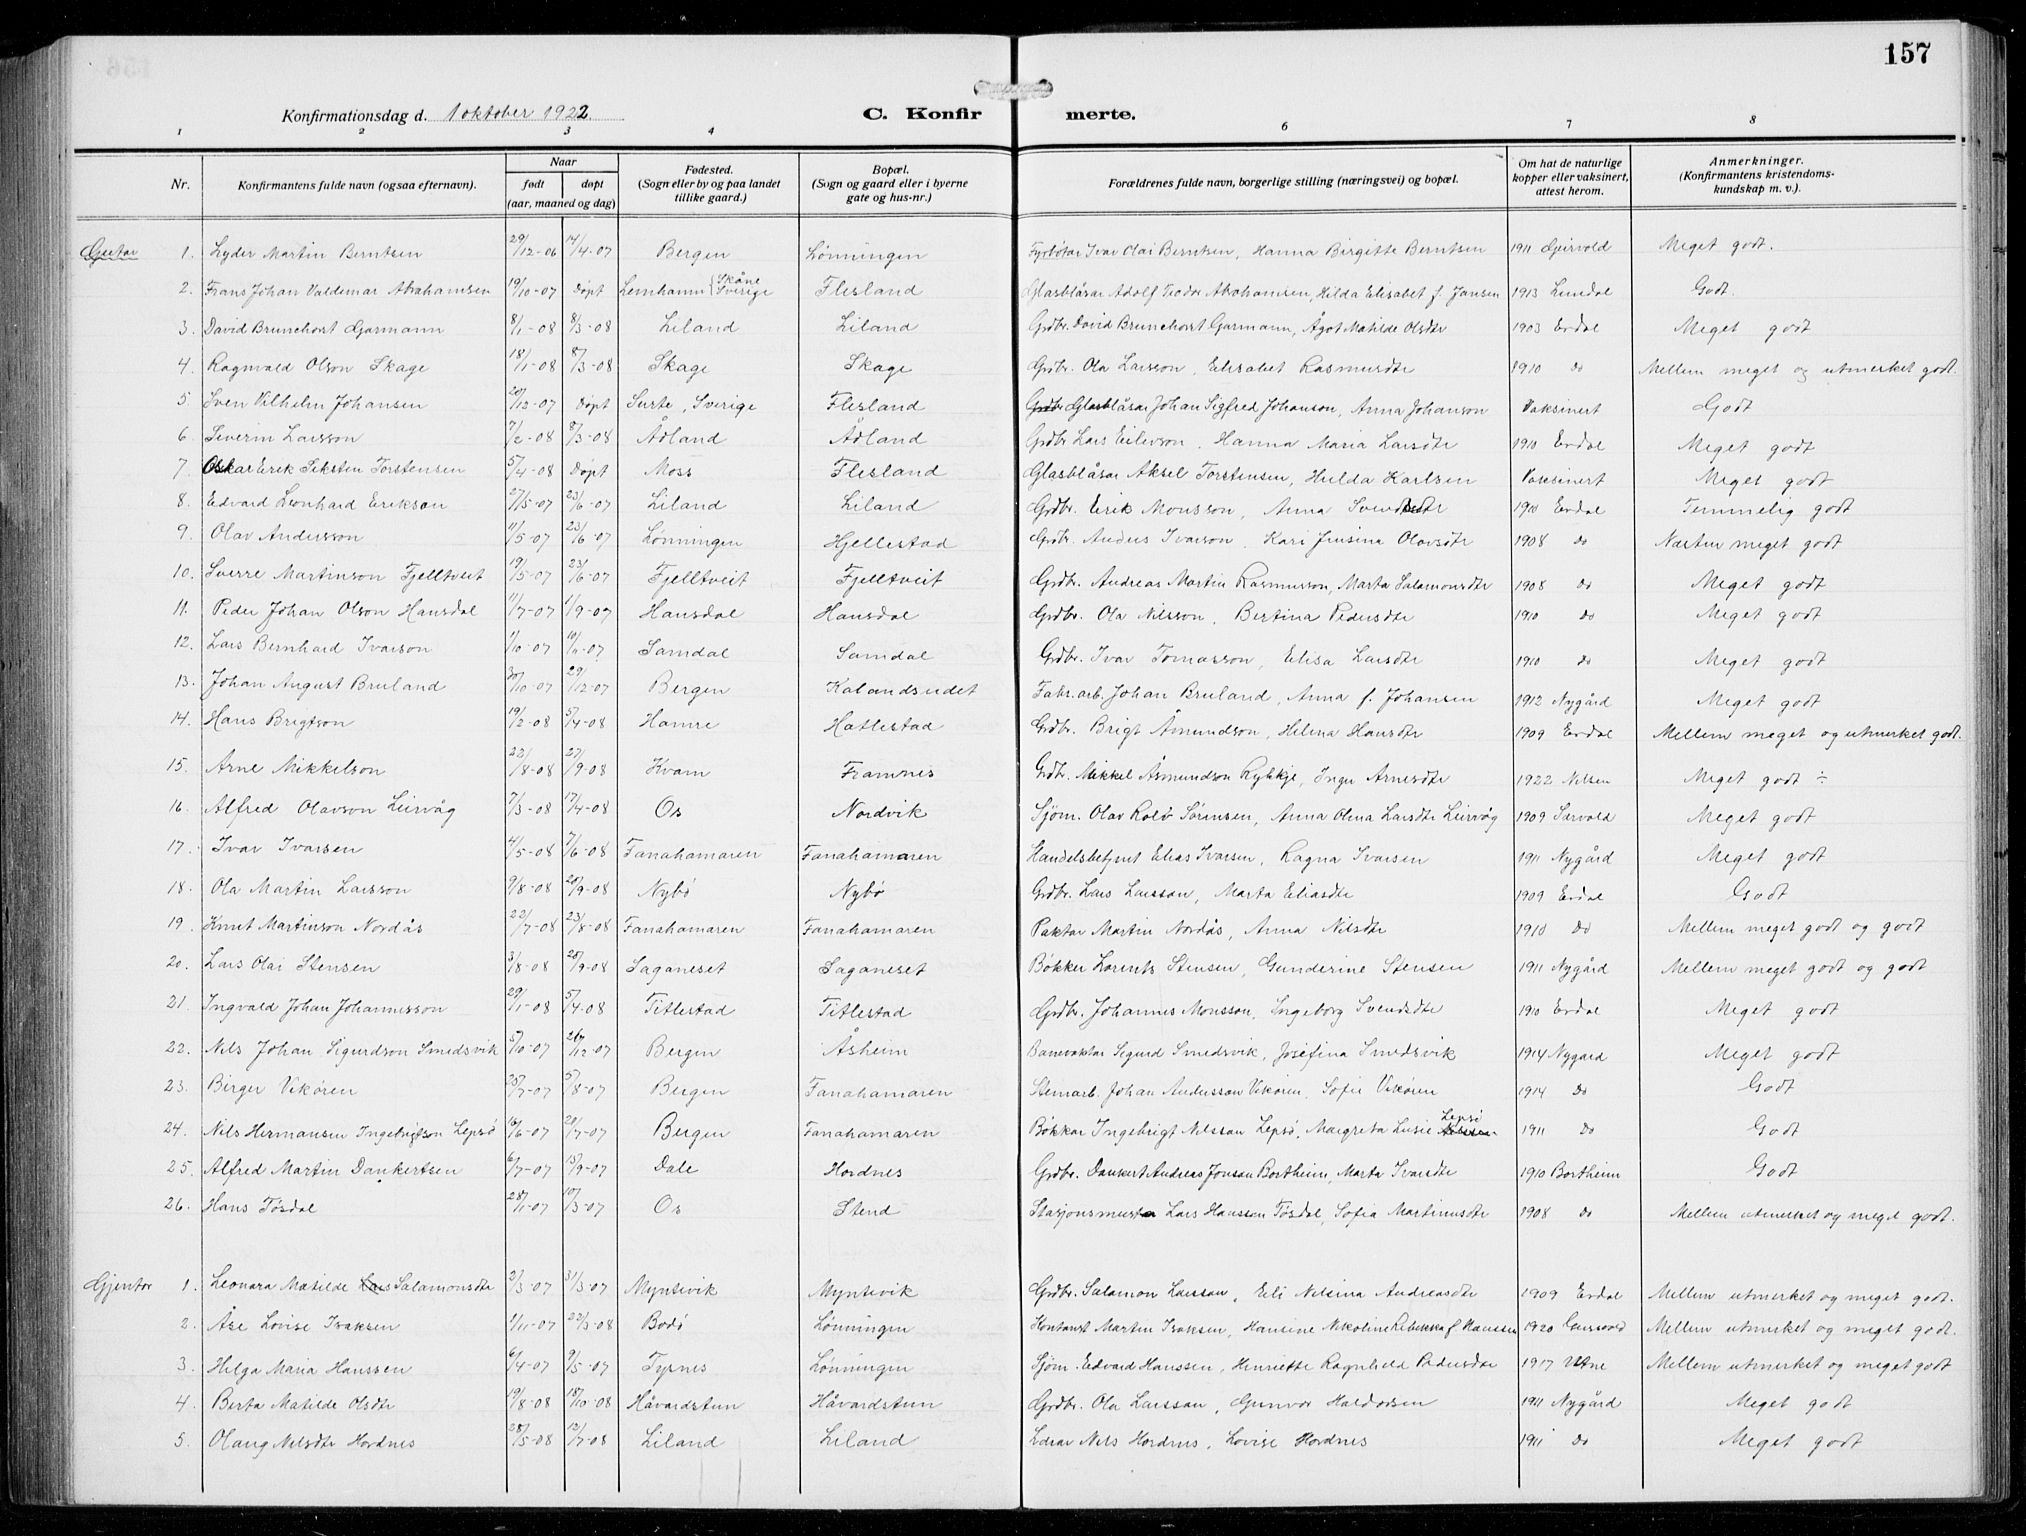 157
Konfirmationsdag d. 1 oktober 1922.
C. Konfirmerte.
1 2 3 4 6 7 8
Nr. Konfirmantens fulde navn (ogsaa efternavn). Naar født døpt (aar, maaned og dag) Fødested. (Sogn eller by og paa landet tillike gaard.) Bopæl. (Sogn og gaard eller i byerne gate og hus-nr.) Forældrenes fulde navn, borgerlige stilling (næringsvei) og bopæl. Om hat de naturlige kopper eller vaksinert, attest herom. Anmerkninger. (Konfirmantens kristendomskundskap m. v.).
Gutar 1. Lyder Martin Berntsen 29/12-06 14/4-07 Bergen Lønningen Fyrbøtar Ivar Olai Berntsen, Hanna Birgitte Berntsen 1911 Meget godt.
2. Frans Johan Valdemar Abrahamsen 19/10-07 Døpt Lemhamn {Skåne Sverige Flesland Glasblåsar Adolf Teodor Abrahamsen, Hilda Elisabet f. Jansen 1913 Lundal Godt.
3. David Brunchorst Garmann 8/1-08 8/3-08 Liland Liland Grdbr. David Brunchorst Garmann, Ågot Matilde Olsdtr 1903 Erdal Meget godt
4. Ragnvald Olson Skage 18/1-08 8/3-08 Skage Skage Grdbr. Ola Larsson, Elisabet Rasmusdtr 1910 do Mellem meget og utmerket godt.
5. Sven Vilhelm Johansen 20/12-07 Døpt Surte, Sverige Flesland Glasblåsar Johan Sigfred Johanson, Anna Johanson Vaksinert Godt
6. Severin Larsson 7/2-08 8/3-08 Ådland Ådland Grdbr Lars Eilevson, Hanna Maria Larsdtr 1910 Erdal Meget godt
7. Oskar Erik Seksten Torstensen 5/4-08 Døpt Moss Flesland Glasblåsar Aksel Torstensen, Hulda Karlsen Vaksinert Meget godt
8. Edvard Leonhard Erikson 27/5-07 23/6-07 Liland Liland Grdbr. Erik Monsson, Anna Svendsdtr 1910 Erdal Temmelig godt
9. Olav Andersson 11/5-07 23/6-07 Lønningen Hjellestad Grdbr. Anders Ivarson, Kari Jensina Olavsdtr 1908 do Næsten meget godt
10. Sverre Martinson Fjelltveit 19/5-07 23/6-07 Fjelltveit Fjelltveit Grdbr. Andreas Martin Rasmusson, Marta Salamonsdtr 1908 do Meget godt
11. Peder Johan Olson Hansdal 11/7-07 1/9-07 Hansdal Hansdal Grdbr. Ola Nilsson, Bertina Pedersdtr 1910 do Meget godt
12. Lars Bernhard Ivarson 1/10-07 10/11-07 Samdal Samdal Grdbr. Ivar Tomasson, Elisa Larsdtr 1910 do Meget godt
13. Johan August Bruland 30/10-07 29/12-07 Bergen Kalandseidet Fabr.arb. Johan Bruland, Anna f. Johansen 1912 Nygård Meget godt
14. Hans Brigtson 19/2-08 5/4-08 Hamre Hatlestad Grdbr. Brigt Åmundson, Helena Hansdtr 1909 Erdal Mellem meget og utmerket godt.
15. Arne Mikkelson 22/8-08 27/9-08 Kvam Framnes Grdbr. Mikkel Åsmundson Rykkje, Inga Arnesdtr 1922 Nilsen Meget godt ÷
16. Alfred Olavson Leirvåg 7/3-08 17/4-08 Os Nordvik Sjøm. Olav Rolv Sørensen, Anna Olena Larsdtr Leirvåg 1909 Meget godt
17. Ivar Ivarsen 4/5-08 7/6-08 Fanahamaren Fanahamaren Handelsbetjent Elias Ivarsen, Ragna Ivarsen 1911 Nygård Meget godt
18. Ola Martin Larsson 9/8-08 20/9-08 Nybø Nybø Grdbr. Lars Larsson, Marta Eliasdtr 1909 Erdal Godt
19. Knut Martinson Nordås 22/7-08 23/8-08 Fanahamaren Fanahamaren Vaktar Martin Nordås, Anna Nilsdtr 1910 do Mellem meget godt og godt
20. Lars Olai Stensen 3/8-08 20/9-08 Saganeset Saganeset Bøkker Lorents Stensen, Gunderine Stensen 1911 Nygård Mellem meget godt og godt
21. Ingvald Johan Johannesson 29/1-08 5/4-08 Titlestad Titlestad Grdbr. Johannes Monsson, Ingeborg Svendsdtr 1910 Erdal Meget godt
22. Nils Johan Sigurdson Smedsvik 5/10-07 26/12-07 Bergen Åsheim Banevaktar Sigurd Smedsvik, Josefina Smedsvik 1914 Nygård Meget godt
23. Birger Vikøren 25/7-07 5/8-07 Bergen Fanahamaren Stenarb. Johan Andersson Vikøren, Sofie Vikøren 1914 do Godt
24. Nils Hermansen Ingebrigtson Lepsø 16/6-07 21/7-07 Bergen Fanahamaren Bøkkar Ingebrigt Nilsson Lepsø, Margreta Lusie Lepsø 1911 do Godt
25. Alfred Martin Dankertsen 6/7-07 15/9-07 Dale Hordnes Grdbr. Dankert Andreas Jonson Bortheim, Marta Ivarsdtr 1910 Bortheim Godt
26. Hans Tøsdal 28/1-07 10/3-07 Os Stend Stasjonsmester Lars Hansson Tøsdal, Sofia Martinusdtr 1908 do Mellem utmerket og meget godt.
Gjentor 1. Leonara Matilde Salamonsdtr 2/3-07 31/3-07 Myntevik Myntevik Grdbr. Salamon Larsson, Eli Nilsina Andreasdtr 1909 Erdal Mellem utmerket og meget godt.
2. Åse Lovise Isaksen 1/11-07 22/3-08 Bodø Lønningen Kontorist Martin Isaksen, Hansine Nikoline Rebekka f Hanssen 1920 Mellem utmerket og meget godt.
3. Helga Maria Hanssen 6/4-07 9/5-07 Typnes Lønningen Sjøm. Edvard Hanssen, Henriette Ragnhild Pedersdtr 1917 Utne Mellem utmerket og meget godt
4. Berta Matilde Olsdtr 19/8-08 18/10-08 Håvardstun Håvardstun Grdbr. Ola Larsson, Gunvor Haldorsen 1911 Nygård Meget godt
5. Olaug Nilsdtr Hordnes 28/5-08 12/7-08 Liland Liland Lærar Nils Hordnes, Lovise Hordnes 1911 do Meget godt